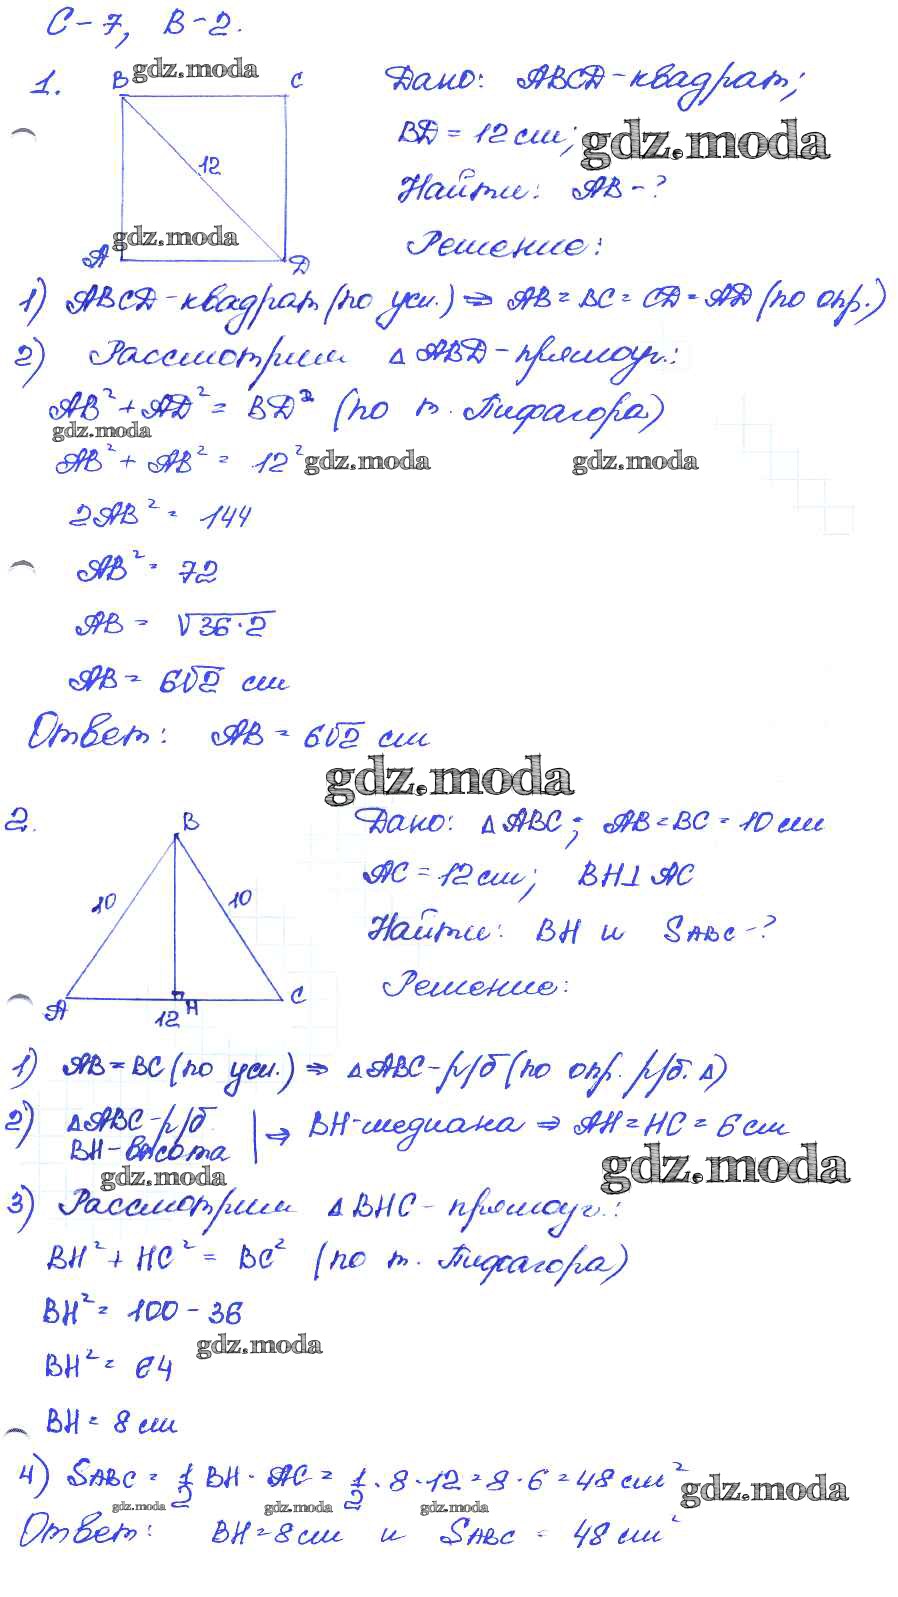 С-7, В-2.
1.
B
gdz.moda
C
12
A
gdz.moda
D
Дано: ABCD-квадрат;
BD = 12 см;
gdz.moda
Найти: AB-?
Решение:
1) ABCD-квадрат (по усл.) ⇒ AB = BC = CD = AD (по опр.)
2) Рассмотрим △ABD-прямоуг.:
AB² + AD² = BD² (по т. Пифагора)
gdz.moda
AB² + AB² = 12²
gdz.moda
gdz.moda
2AB² = 144
AB² = 72
AB = √36·2
AB = 6√2 см
Ответ: AB = 6√2 см
gdz.moda
2.
B
10
10
A
12
H
C
Дано: △ABC; AB=BC=10 см
AC = 12 см; BH⊥AC
Найти: BH и SABC-?
Решение:
1) AB=BC (по усл.) ⇒ △ABC-р/б (по опр. р/б. △)
2) △ABC-р/б
BH-высота
| ⇒ BH-медиана ⇒ AH = HC = 6 см
gdz.moda
gdz.moda
3) Рассмотрим △BHC-прямоуг.:
BH² + HC² = BC² (по т. Пифагора)
BH² = 100 - 36
gdz.moda
BH² = 64
BH = 8 см
4) SABC = 1/2 BH · AC = 1/2 · 8 · 12 = 8 · 6 = 48 см²
gdz.moda
gdz.moda
gdz.moda
gdz.moda
Ответ: BH = 8 см и SABC = 48 см²